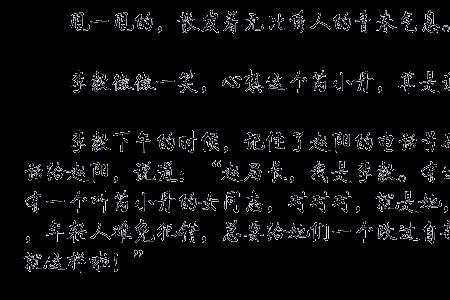 甩一甩的，散发着无比诱人的青春气息。
李毅微微一笑，心想这个芮小丹，算是
李毅下车的时候，记住了赵阳的电话号
话给赵阳，说道：“赵局长，我是李毅。
有一个叫芮小丹的女同志，对对对，就是她，
，年轻人难免犯错，总要给她们一个改过自
就这样啦！”